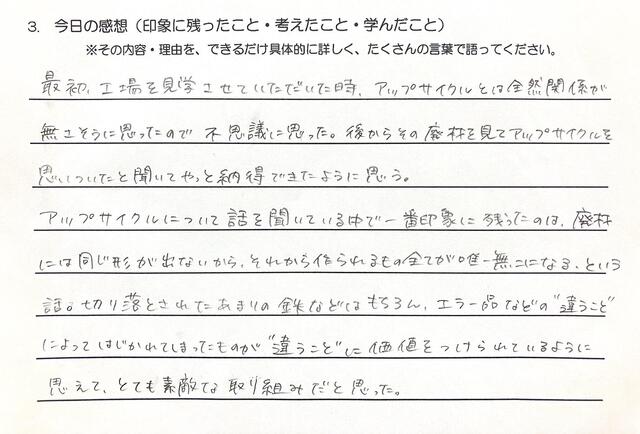 3. 今日の感想（印象に残ったこと・考えたこと・学んだこと）
※その内容・理由を、できるだけ具体的に詳しく、たくさんの言葉で語ってください。
最初、工場を見学させていただいた時、アップサイクルとは全然関係が
無さそうに思ったので不思議に思った。後からその廃材を見てアップサイクルを
思いついたと聞いてやっと納得できたように思う。
アップサイクルについて話を聞いている中で一番印象に残ったのは、廃材
には同じ形が出ないから、それから作られるもの全てが唯一無二になる、という
話。切り落とされたあまりの鉄などはもちろん、エラー品などの"違うこと"
によってはじかれてしまったものが"違うこと"に価値をつけられているように
思えて、とても素敵な取り組みだと思った。